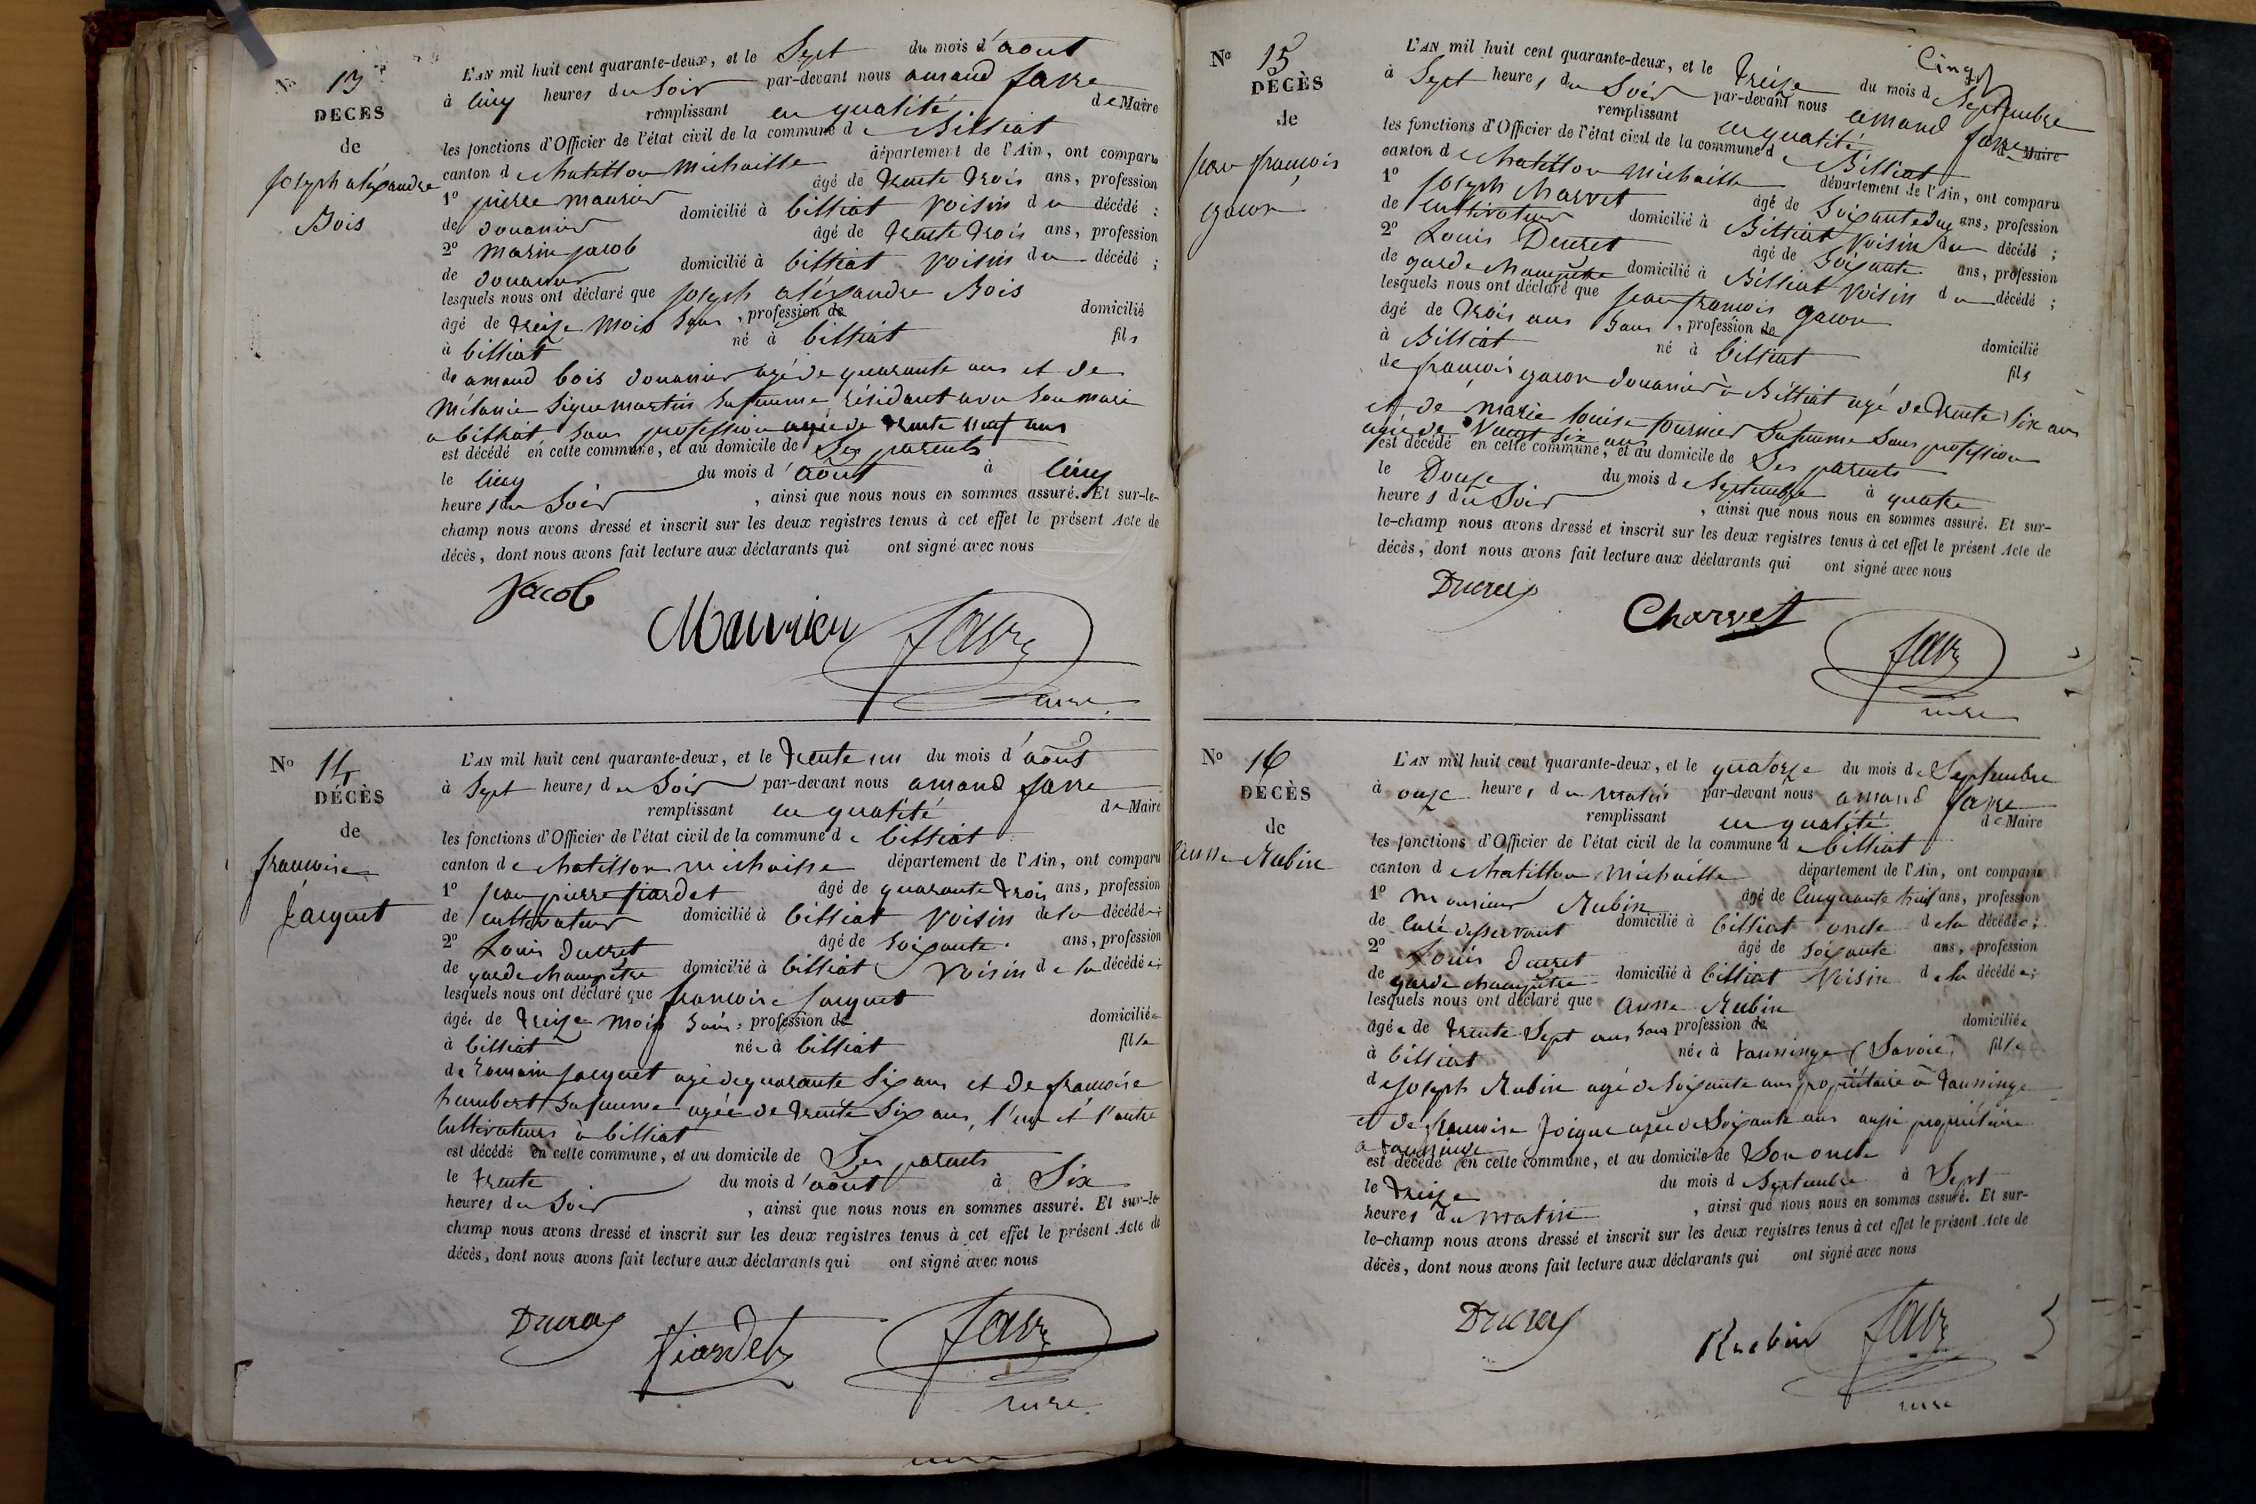 No 13
DECES
de
joseph aléxandre
Bois
L'AN mil huit cent quarante-deux, et le Sept du mois d'aout
à cinq heures du Soir par-devant nous amand favre
remplissant en qualité de Maire
les fonctions d'Officier de l'état civil de la commune de Billiat
canton de chatillon Michaille département de l'Ain, ont comparu
1o pierre maurier âgé de trente trois ans, profession
de douanier domicilié à billiat voisin du décédé ;
2o marin jacob âgé de trente trois ans, profession
de douanier domicilié à billiat voisin du décédé ;
lesquels nous ont déclaré que joseph aléxandre Bois
âgé de treize mois sans, profession de domicilié
à billiat né à billiat fils
de amand bois douanier agé de quarante ans et de
mélanie martin sa femme résidant avec son mari
a billiat sans profession agée de trente neuf ans
est décédé en cette commune, et au domicile de Ses parents
le cinq du mois d'août à cinq
heures du Soir, ainsi que nous nous en sommes assuré. Et sur-le-
champ nous avons dressé et inscrit sur les deux registres tenus à cet effet le présent Acte de
décès, dont nous avons fait lecture aux déclarants qui ont signé avec nous
Jacob
Maurier favre
maire
No 14
DÉCÈS
de
francoise
Jacquet
L'AN mil huit cent quarante-deux, et le trente un du mois d'août
à Sept heures du Soir par-devant nous amand favre
remplissant en qualité de Maire
les fonctions d'Officier de l'état civil de la commune de billiat
canton de chatillon michaille département de l'Ain, ont comparu
1o jean pierre tiardet âgé de quarante trois ans, profession
de cultivateur domicilié à billiat voisin de la décédée ;
2o Louis Ducret âgé de soixante ans, profession
de garde champêtre domicilié à billiat voisin de la décédée ;
lesquels nous ont déclaré que francoise jacquet
âgée de treize mois sans, profession de domiciliée
à billiat née à billiat fille
de romain jacquet agé de quarante Six ans et de francoise
humbert sa femme agée de trente Six ans, l'un et l'autre
cultivateurs à billiat
est décédé en cette commune, et au domicile de Ses parents
le trente du mois d'août à Six
heures du Soir, ainsi que nous nous en sommes assuré. Et sur-le-
champ nous avons dressé et inscrit sur les deux registres tenus à cet effet le présent Acte de
décès, dont nous avons fait lecture aux déclarants qui ont signé avec nous
Ducret
tiardet favre
maire
No 15
DÉCÈS
de
jean françois
gacon
Cinq
L'AN mil huit cent quarante-deux, et le treize du mois de Septembre
à Sept heures du Soir par-devant nous amand favre
remplissant en qualité de Maire
les fonctions d'Officier de l'état civil de la commune de Billiat
canton de chatillon michaille département de l'Ain, ont comparu
1o joseph charvet âgé de Soixante deux ans, profession
de cultivateur domicilié à Billiat voisin du décédé ;
2o Louis Ducret âgé de soixante ans, profession
de garde champêtre domicilié à Billiat voisin du décédé ;
lesquels nous ont déclaré que jean françois gacon
âgé de trois ans sans, profession de domicilié
à Billiat né à billiat fils
de françois gacon douanier à Billiat agé de trente Six ans
et de marie louise fournier sa femme sans profession
agée de vingt six ans
est décédé en cette commune, et au domicile de Ses parents
le Douze du mois de Septembre à quatre
heures du Soir, ainsi que nous nous en sommes assuré. Et sur-
le-champ nous avons dressé et inscrit sur les deux registres tenus à cet effet le présent Acte de
décès, dont nous avons fait lecture aux déclarants qui ont signé avec nous
Ducret
Charvet
favre
maire
No 16
DÉCÈS
de
Rubin
L'AN mil huit cent quarante-deux, et le quatorze du mois de Septembre
à onze heures du matin par-devant nous amand favre
remplissant en qualité de Maire
les fonctions d'Officier de l'état civil de la commune de billiat
canton de chatillon michaille département de l'Ain, ont comparu
1o monsieur Rubin âgé de Cinquante huit ans, profession
de curé desservant domicilié à billiat oncle de la décédée ;
2o Louis Ducret âgé de soixante ans, profession
de garde champêtre domicilié à billiat voisin de la décédée ;
lesquels nous ont déclaré que Rubin
âgée de trente Sept ans sans profession de domiciliée
à billiat née à tanninge (Savoie) fille
de joseph Rubin agé de Soixante ans propriétaire à tanninge
et de francoise agée de Soixante ans aussi propriétaire
a tanninge
est décédé en cette commune, et au domicile de Son oncle
le treize du mois de Septembre à Sept
heures du matin, ainsi que nous nous en sommes assuré. Et sur-
le-champ nous avons dressé et inscrit sur les deux registres tenus à cet effet le présent Acte de
décès, dont nous avons fait lecture aux déclarants qui ont signé avec nous
Ducret
Rubin favre
maire